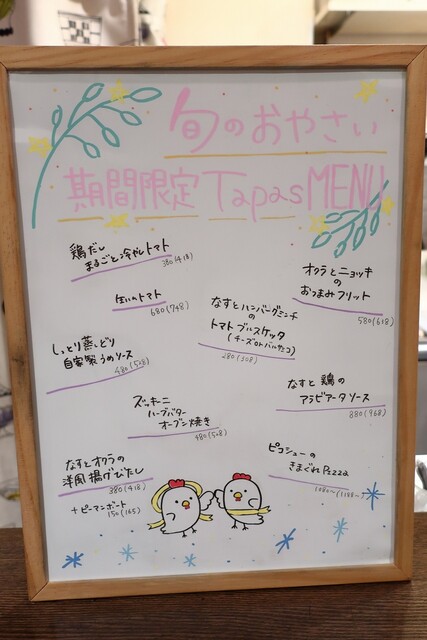 旬のおやさい
期間限定 Tapas MENU
鶏だし
まるごと冷やしトマト
380(418)
オクラとニョッキ
の
おつまみフリット
580(638)
生ハムトマト
680(748)
なすとハンバーグミンチ
の
トマトブルスケッタ
(チーズorバルサミコ)
280(308)
しっとり蒸しどり
自家製うめソース
480(528)
なすと鶏の
アラビアータソース
880(968)
ズッキーニ
ハーブバター
オーブン焼き
480(528)
なすとオクラの
洋風揚げびたし
380(418)
+ピーマンボート
150(165)
ピコシューの
きまぐれPizza
1080〜(1188〜)